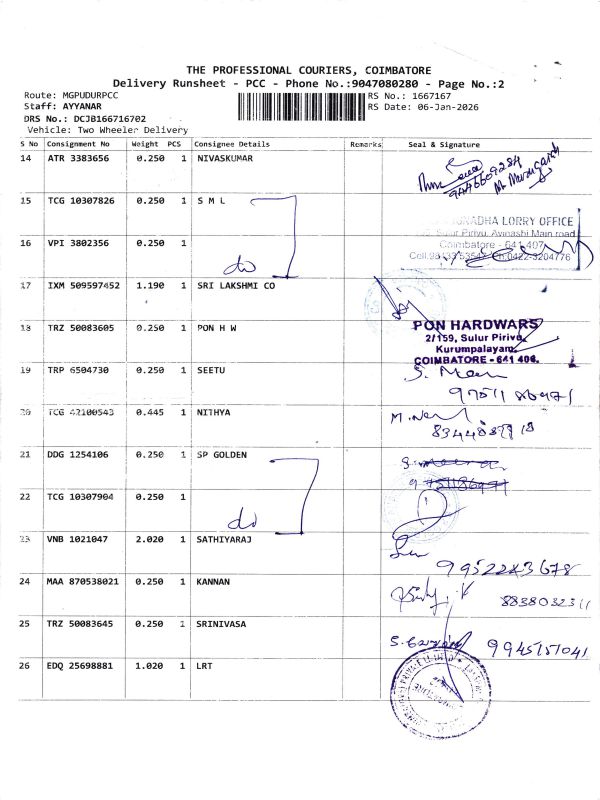 THE PROFESSIONAL COURIERS, COIMBATORE
Delivery Runsheet - PCC - Phone No.:9047080280 - Page No.:2
Route: MGPUDURPCC
RS No.: 1667167
Staff: AYYANAR
RS Date: 06-Jan-2026
DRS No.: DCJB166716702
Vehicle: Two Wheeler Delivery
S No Consignment No Weight PCS Consignee Details Remarks Seal & Signature
14 ATR 3383656 0.250 1 NIVASKUMAR
9446609284
15 TCG 10307826 0.250 1 S M L
LORRY OFFICE
Sulur Pirivu, Avinashi Main road
16 VPI 3802356 0.250 1
do
Coimbatore - 641 407
17 IXM 509597452 1.190 1 SRI LAKSHMI CO
18 TRZ 50083605 0.250 1 PON H W
PON HARDWARS
2/159, Sulur Pirivu,
Kurumpalayam,
COIMBATORE - 641 406.
19 TRP 6504730 0.250 1 SEETU
20 TCG 42100543 0.445 1 NITHYA
21 DDG 1254106 0.250 1 SP GOLDEN
22 TCG 10307904 0.250 1
do
23 VNB 1021047 2.020 1 SATHIYARAJ
9952243678
24 MAA 870538021 0.250 1 KANNAN
25 TRZ 50083645 0.250 1 SRINIVASA
9945151041
26 EDQ 25698881 1.020 1 LRT